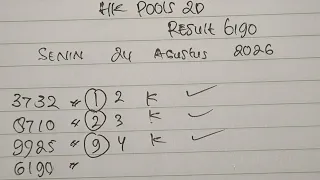 HK POOLS 2D
RESULT 6190
SENIN 24 AGUSTUS 2026
3732 " 1 2 K ✓
8710 " 2 3 K ✓
9925 " 9 4 K ✓
6190 "